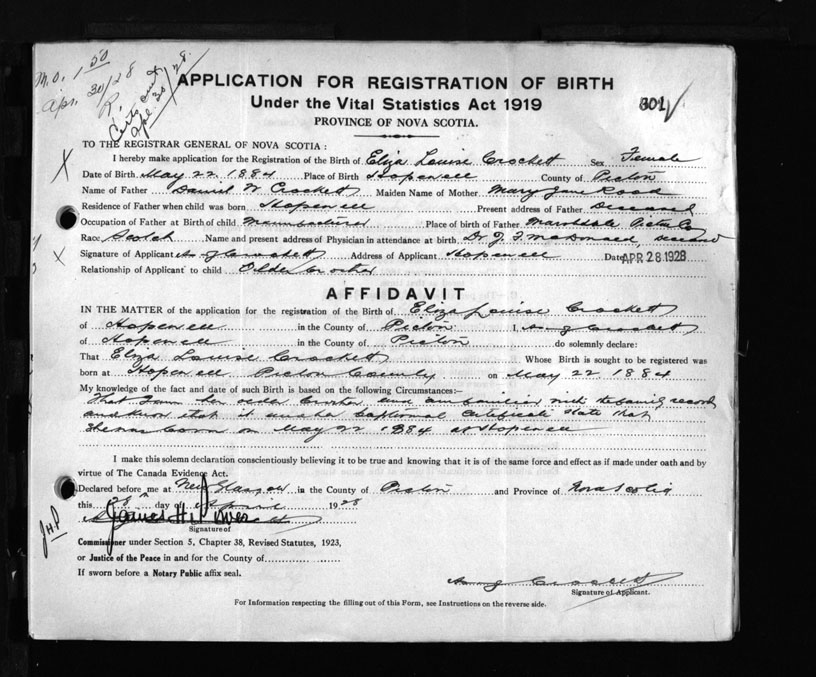 M.O. 1 50
Apr. 30/28
R.
Certs out
Apl. 30/28.
APPLICATION FOR REGISTRATION OF BIRTH
Under the Vital Statistics Act 1919
801
PROVINCE OF NOVA SCOTIA.
TO THE REGISTRAR GENERAL OF NOVA SCOTIA:
I hereby make application for the Registration of the Birth of Eliza Louise Crockett Sex Female
Date of Birth May 22 1884 Place of Birth Hopewell County of Pictou
Name of Father Daniel W Crockett Maiden Name of Mother Mary Jane
Residence of Father when child was born Hopewell Present address of Father Deceased
Occupation of Father at Birth of child Place of birth of Father Marshdale Pictou Co
Race Scotch Name and present address of Physician in attendance at birth Dr J. McDonald, deceased
Signature of Applicant Crockett Address of Applicant Hopewell Date APR 28 1928
Relationship of Applicant to child Older brother
AFFIDAVIT
IN THE MATTER of the application for the registration of the Birth of Eliza Louise Crockett
of Hopewell in the County of Pictou I, Crockett
of Hopewell in the County of Pictou do solemnly declare:
That Eliza Louise Crockett Whose Birth is sought to be registered was
born at Hopewell Pictou County on May 22 1884
My knowledge of the fact and date of such Birth is based on the following Circumstances:—
That I am her older brother and am familiar with the family records
and know that Baptismal Certificate state that
she was born on May 22 1884 at Hopewell
I make this solemn declaration conscientiously believing it to be true and knowing that it is of the same force and effect as if made under oath and by
virtue of The Canada Evidence Act.
Declared before me at New Glasgow in the County of Pictou and Province of Nova Scotia
this 28 day of April 1928
James H. Power
JHP
Signature of
Commissioner under Section 5, Chapter 38, Revised Statutes, 1923,
or Justice of the Peace in and for the County of
If sworn before a Notary Public affix seal.
Crockett
Signature of Applicant.
For Information respecting the filling out of this Form, see Instructions on the reverse side.